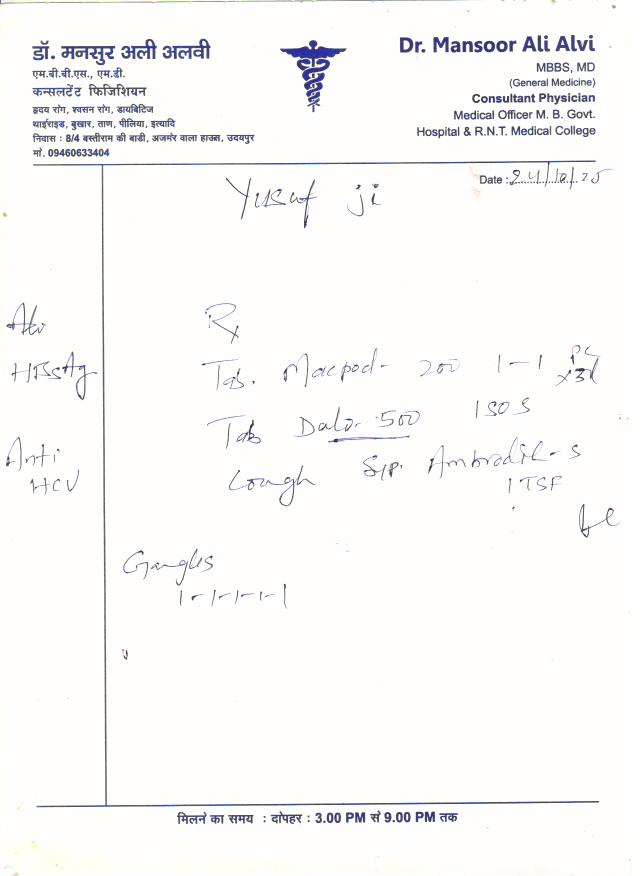 डॉ. मनसुर अली अलवी
एम.बी.बी.एस., एम.डी.
कन्सलटेंट फिजिशियन
हृदय रोग, श्वसन रोग, डायबिटिज
थाईराइड, बुखार, ताण, पीलिया, इत्यादि
निवास : 8/4 बस्तीराम की बाडी, अजमेर वाला हाउस, उदयपुर
मो. 09460633404
Dr. Mansoor Ali Alvi
MBBS, MD
(General Medicine)
Consultant Physician
Medical Officer M. B. Govt.
Hospital & R.N.T. Medical College
Date :
Yusuf ji
HBsAg
Anti
HCV
Rx
Tab. Macpod- 200 1-1 PC
Tab Dolo-500 1 SOS
Cough Syp. Ambrodil-S
1 TSF
Gargles
1-1-1-1-1
मिलने का समय : दोपहर : 3.00 PM से 9.00 PM तक